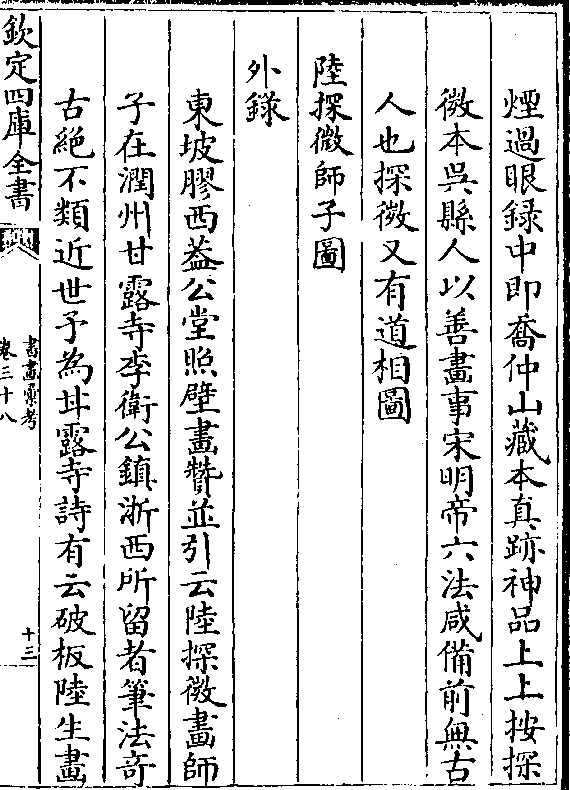 煙過眼録中即喬仲山藏本真跡神品上上按探
微本吳縣人以善畫事宋明帝六法咸備前無古
人也探微又有道相圖
陸探微師子圖
外録
東坡膠西葢公堂照壁畫贊並引云陸探微畫師
子在潤州甘露寺李衛公鎮浙西所留者筆法竒
古絶不類近世予為甘露寺詩有云破板陸生畫
欽定四庫全書
書畫彚考
卷三十八
十三